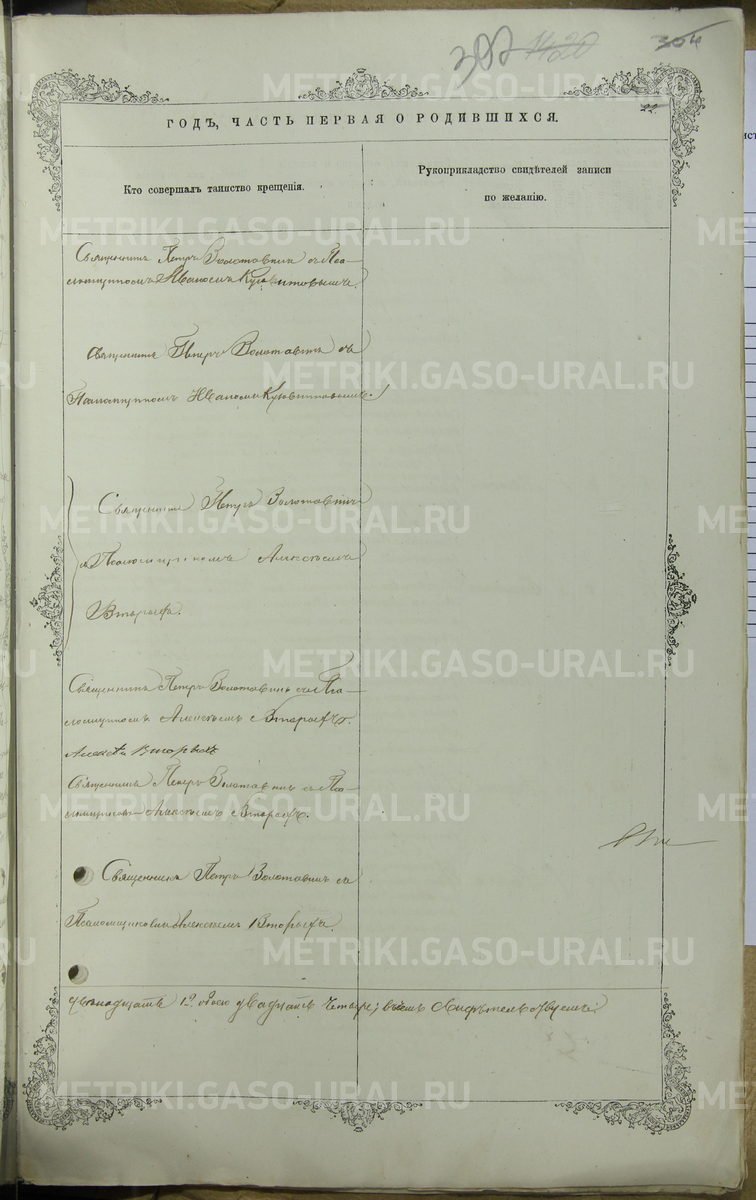 307 1420 304
22.
ГОДЪ, ЧАСТЬ ПЕРВАЯ О РОДИВШИХСЯ.
Кто совершалъ таинство крещенія.
Рукоприкладство свидѣтелей записи
по желанію.
Священникъ Петръ Золотавинъ съ Пса-
ломщикомъ Иваномъ
Священникъ Петръ Золотавинъ съ
Псаломщикомъ Иваномъ
Священникъ Петръ Золотавинъ
съ Псаломщикомъ Алексѣемъ
Вторыхъ.
Священникъ Петръ Золотавинъ съ Пса-
ломщикомъ Алексѣемъ Вторыхъ.
Алексѣй Вторыхъ
Священникъ Петръ Золотавинъ съ Пса-
ломщикомъ Алексѣемъ Вторыхъ.
Священникъ Петръ Золотавинъ съ
Псаломщикомъ Алексѣемъ Вторыхъ.
12. обоего двадцать четыре,
METRIKI.GASO-URAL.RU